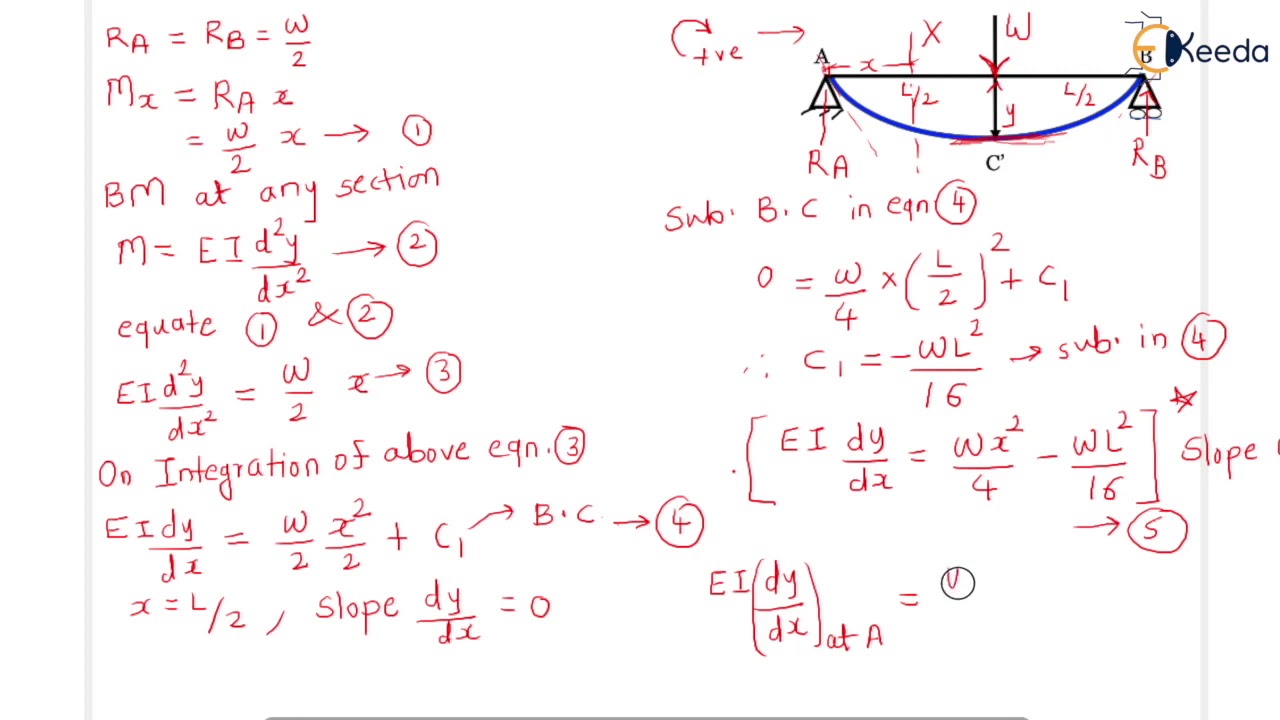 R_A = R_B = W/2
M_x = R_A x
= W/2 x → ①
BM at any section
M = EI d²y/dx² → ②
equate ① & ②
EI d²y/dx² = W/2 x → ③
On Integration of above eqn. ③
EI dy/dx = W/2 x²/2 + C₁ → B.C. → ④
x = L/2 , Slope dy/dx = 0
+ve →
X
W
A
x
L/2
L/2
B
y
R_A
C'
R_B
Keeda
Sub. B.C in eqn ④
0 = W/4 × (L/2)² + C₁
∴ C₁ = -WL²/16 → sub. in ④
[EI dy/dx = Wx²/4 - WL²/16] Slope
→ ⑤
EI (dy/dx) at A =